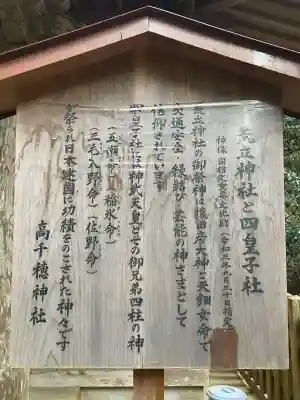 荒立神社と四皇子社
神像 国指定重要文化財(令和三年九月三十日指定)
荒立神社の御祭神は猿田彦大神と天鈿女命で
交通安全・縁結び・芸能の神さまとして
信仰されています
四皇子社には神武天皇とその御兄弟四社の神
(五瀬命)(稲氷命)
(三毛入野命)(佐野命)
が祭られ日本建国に功績をのこされた神々です
高千穂神社